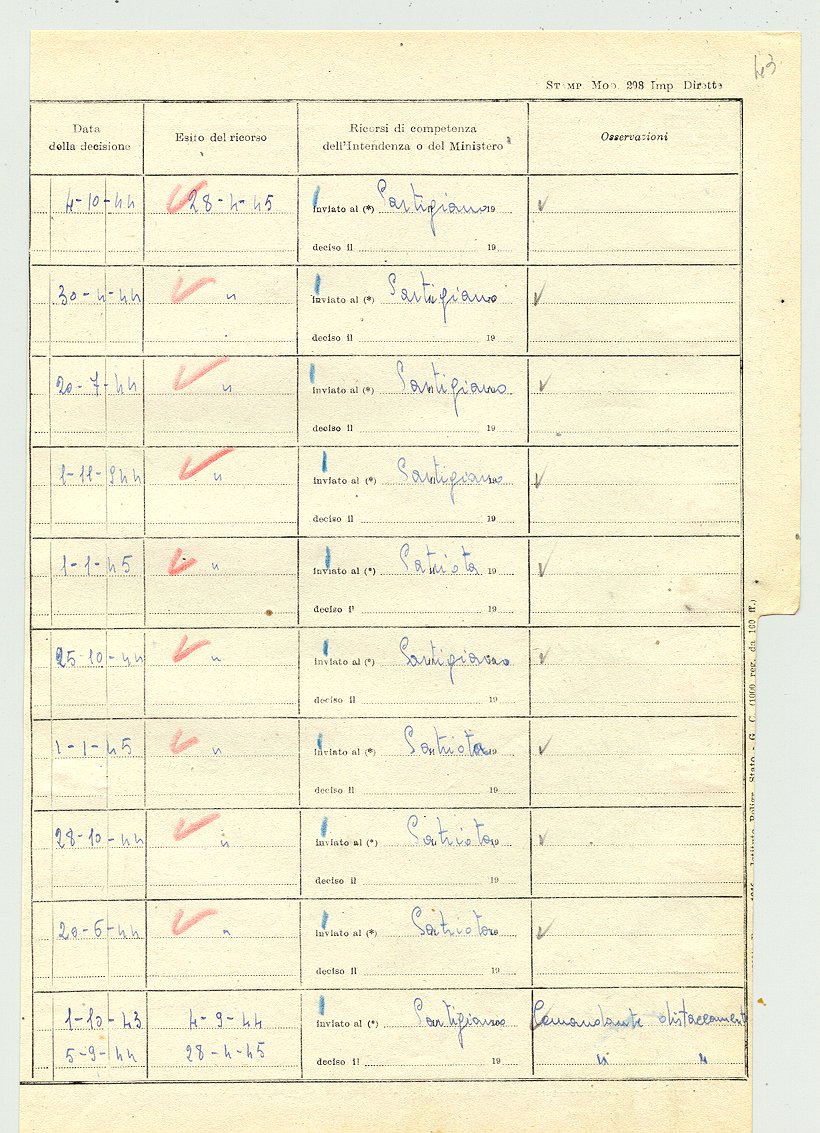 43
STAMP. MOD. 298 Imp. Dirette
Data della decisione | Esito del ricorso | Ricorsi di competenza dell'Intendenza o del Ministero | Osservazioni
4-10-44 | 28-4-45 | inviato al (*) Partigiano 19
deciso il 19
30-4-44 | " | inviato al (*) Partigiano
deciso il 19
20-7-44 | " | inviato al (*) Partigiano
deciso il 19
1-11-944 | " | inviato al (*) Partigiano 19
deciso il 19
1-1-45 | " | inviato al (*) Patriota 19
deciso il 19
25-10-44 | " | inviato al (*) Partigiano
deciso il 19
1-1-45 | " | inviato al (*) Patriota 19
deciso il 19
28-10-44 | " | inviato al (*) Patriota 19
deciso il 19
20-6-44 | " | inviato al (*) Patriota 19
deciso il 19
1-10-43 | 4-9-44 | inviato al (*) Partigiano | Comandante distaccamento
5-9-44 | 28-4-45 | deciso il 19 | " "
Istituto Poligr. Stato - G. C. (1000 reg. da 100 ff.)